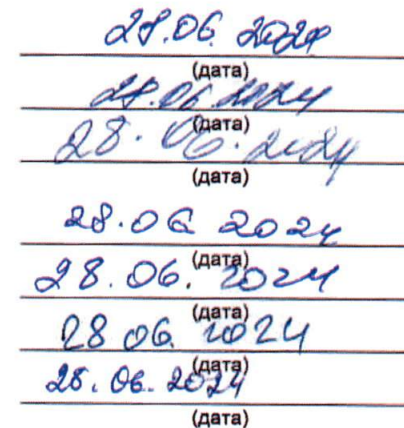 28.06.2024
(дата)
28.06.2024
(дата)
28.06.2024
(дата)
28.06 2024
(дата)
28.06.2024
(дата)
28 06. 2024
(дата)
28.06.2024
(дата)